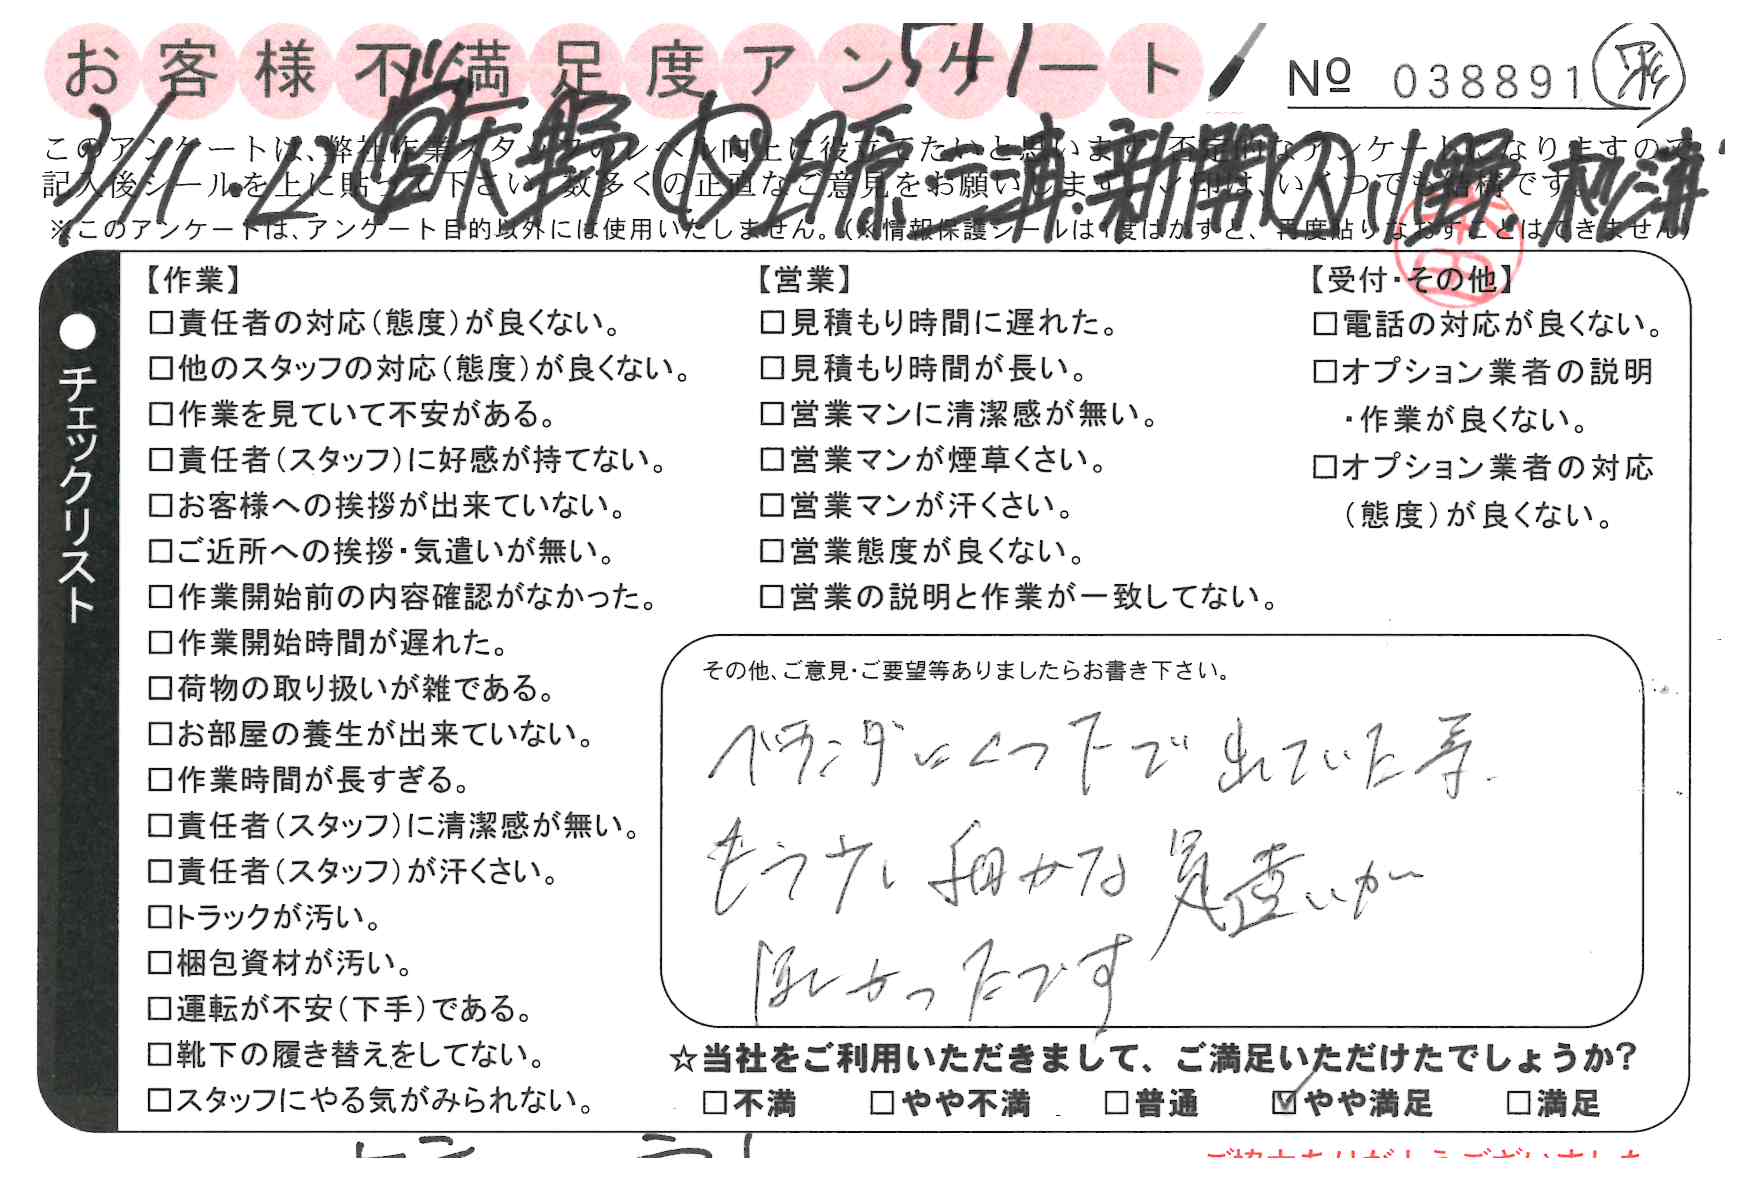 お客様不満足度アンケート
№ 038891
このアンケートは、弊社作業スタッフのレベル向上に役立てたいと思います。否定的なアンケートになりますので、
記入後シールを上に貼って下さい。数多くの正直なご意見をお願いします。レ印は、いくつでも結構です。
※このアンケートは、アンケート目的以外には使用いたしません。(※情報保護シールは1度はがすと、再度貼りなおすことはできません)
●チェックリスト
【作業】
□責任者の対応(態度)が良くない。
□他のスタッフの対応(態度)が良くない。
□作業を見ていて不安がある。
□責任者(スタッフ)に好感が持てない。
□お客様への挨拶が出来ていない。
□ご近所への挨拶・気遣いが無い。
□作業開始前の内容確認がなかった。
□作業開始時間が遅れた。
□荷物の取り扱いが雑である。
□お部屋の養生が出来ていない。
□作業時間が長すぎる。
□責任者(スタッフ)に清潔感が無い。
□責任者(スタッフ)が汗くさい。
□トラックが汚い。
□梱包資材が汚い。
□運転が不安(下手)である。
□靴下の履き替えをしてない。
□スタッフにやる気がみられない。
【営業】
□見積もり時間に遅れた。
□見積もり時間が長い。
□営業マンに清潔感が無い。
□営業マンが煙草くさい。
□営業マンが汗くさい。
□営業態度が良くない。
□営業の説明と作業が一致してない。
【受付・その他】
□電話の対応が良くない。
□オプション業者の説明
・作業が良くない。
□オプション業者の対応
(態度)が良くない。
その他、ご意見・ご要望等ありましたらお書き下さい。
ベランダにくつ下で出ていた事.
もう少し細かな気遣いが
ほしかったです
☆当社をご利用いただきまして、ご満足いただけたでしょうか?
□不満 □やや不満 □普通 ☑やや満足 □満足
ご協力ありがとうございました